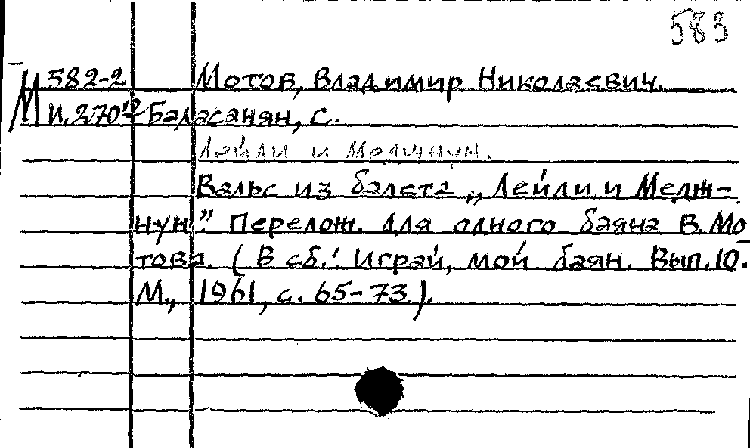 583
М 582-2 Мотов, Владимир Николаевич.
И.270 Баласанян, С.
Лейли и Меджнун.
Вальс из балета „Лейли и Медж-
нун". Перелож. для одного баяна В. Мо
това. (В сб.: Играй, мой баян. Вып. 10.
М., 1961, с. 65-73.).